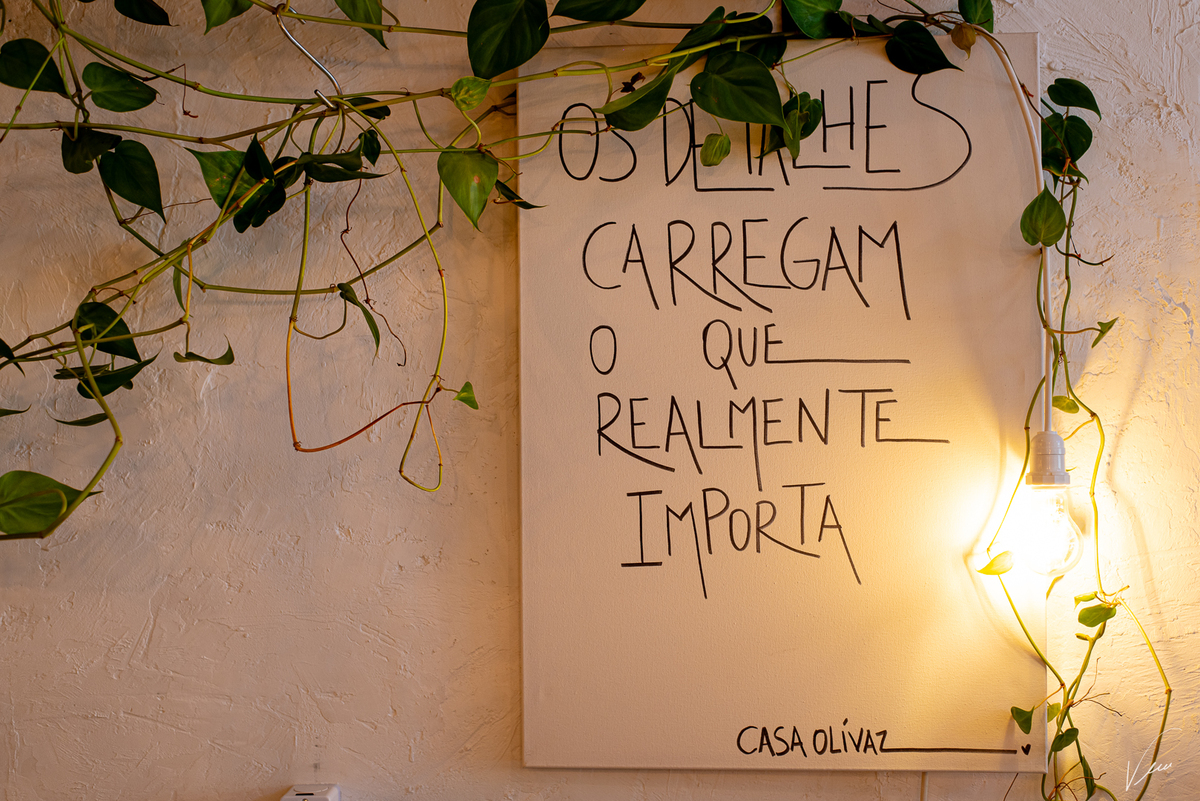 OS DETALHES
CARREGAM
O QUE
REALMENTE
IMPORTA
CASA OLÍVAZ